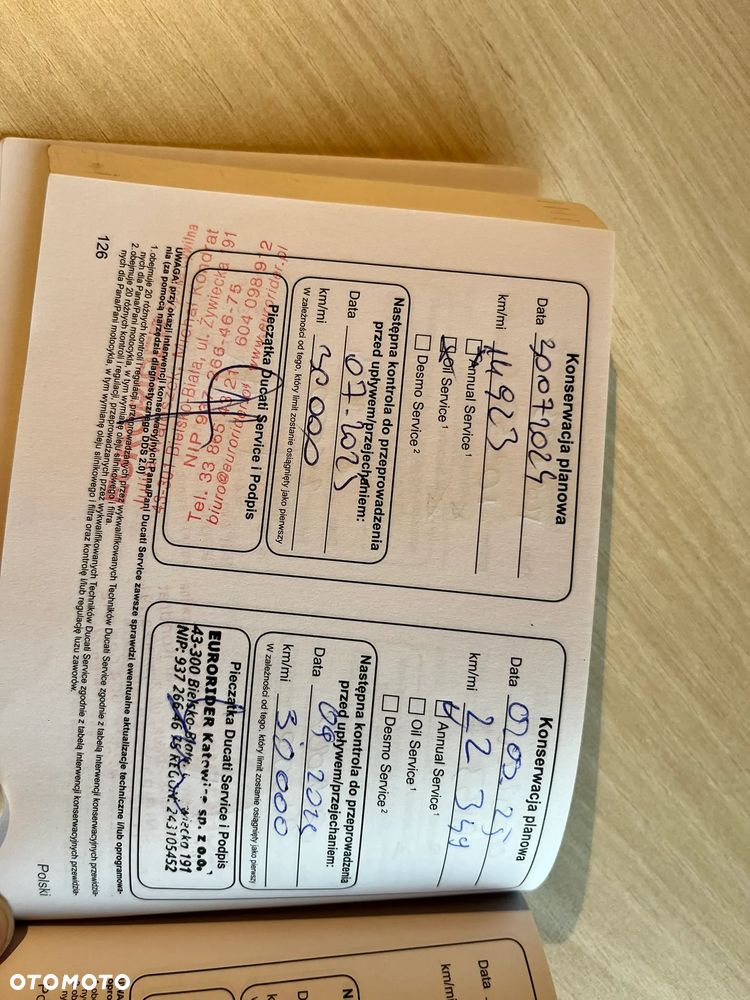 Konserwacja planowa
Data 30 07 2024
km/mi 14923
Annual Service 1
Oil Service 1
Desmo Service 2
Następna kontrola do przeprowadzenia
przed upływem/przejechaniem:
Data 07-2025
km/mi 30 000
W zależności od tego, który limit zostanie osiągnięty jako pierwszy
Pieczątka Ducati Service i Podpis
Konserwacja planowa
Data
km/mi 22 349
Annual Service 1
Oil Service 1
Desmo Service 2
Następna kontrola do przeprowadzenia
przed upływem/przejechaniem:
Data
km/mi 30 000
W zależności od tego, który limit zostanie osiągnięty jako pierwszy
Pieczątka Ducati Service i Podpis
EURORIDER Katowice sp. z o.o.
43-300 Bielsko-Biała, 191
NIP: 937 266 46 75 REGON: 243105452
UWAGA: przy okazji interwencji konserwacyjnych Pana/Pani Ducati Service zawsze sprawdzi ewentualne aktualizacje techniczne i/lub oprogramowa-
nia (za pomocą narzędzia diagnostycznego DDS 2.0)
1. obejmuje 20 różnych kontroli i regulacji, przeprowadzanych przez wykwalifikowanych Techników Ducati Service zgodnie z tabelą interwencji konserwacyjnych przewidzia-
nych dla Pana/Pani motocykla, w tym wymianę oleju silnikowego i filtra.
2. obejmuje 20 różnych kontroli i regulacji, przeprowadzanych przez wykwalifikowanych Techników Ducati Service zgodnie z tabelą interwencji konserwacyjnych przewidzia-
nych dla Pana/Pani motocykla, w tym wymianę oleju silnikowego i filtra oraz kontrolę i/lub regulację luzu zaworów.
126
Polski
Data
km/mi
OTOMOTO